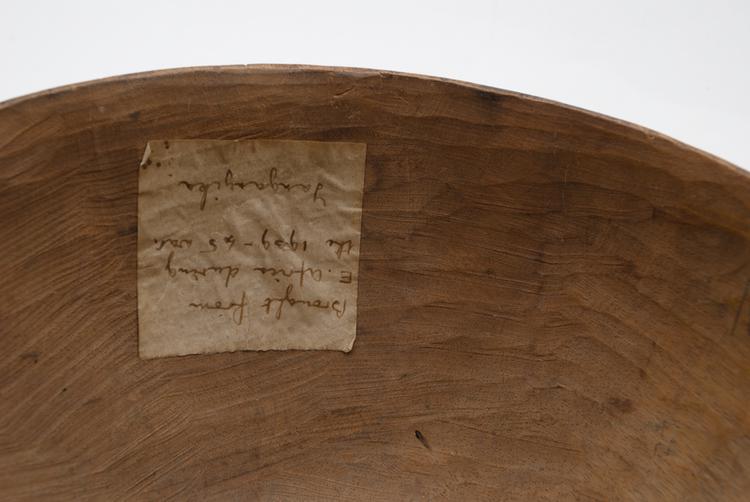 Brought from
E. Africa during
the 1939-45 war.
Tanganyika